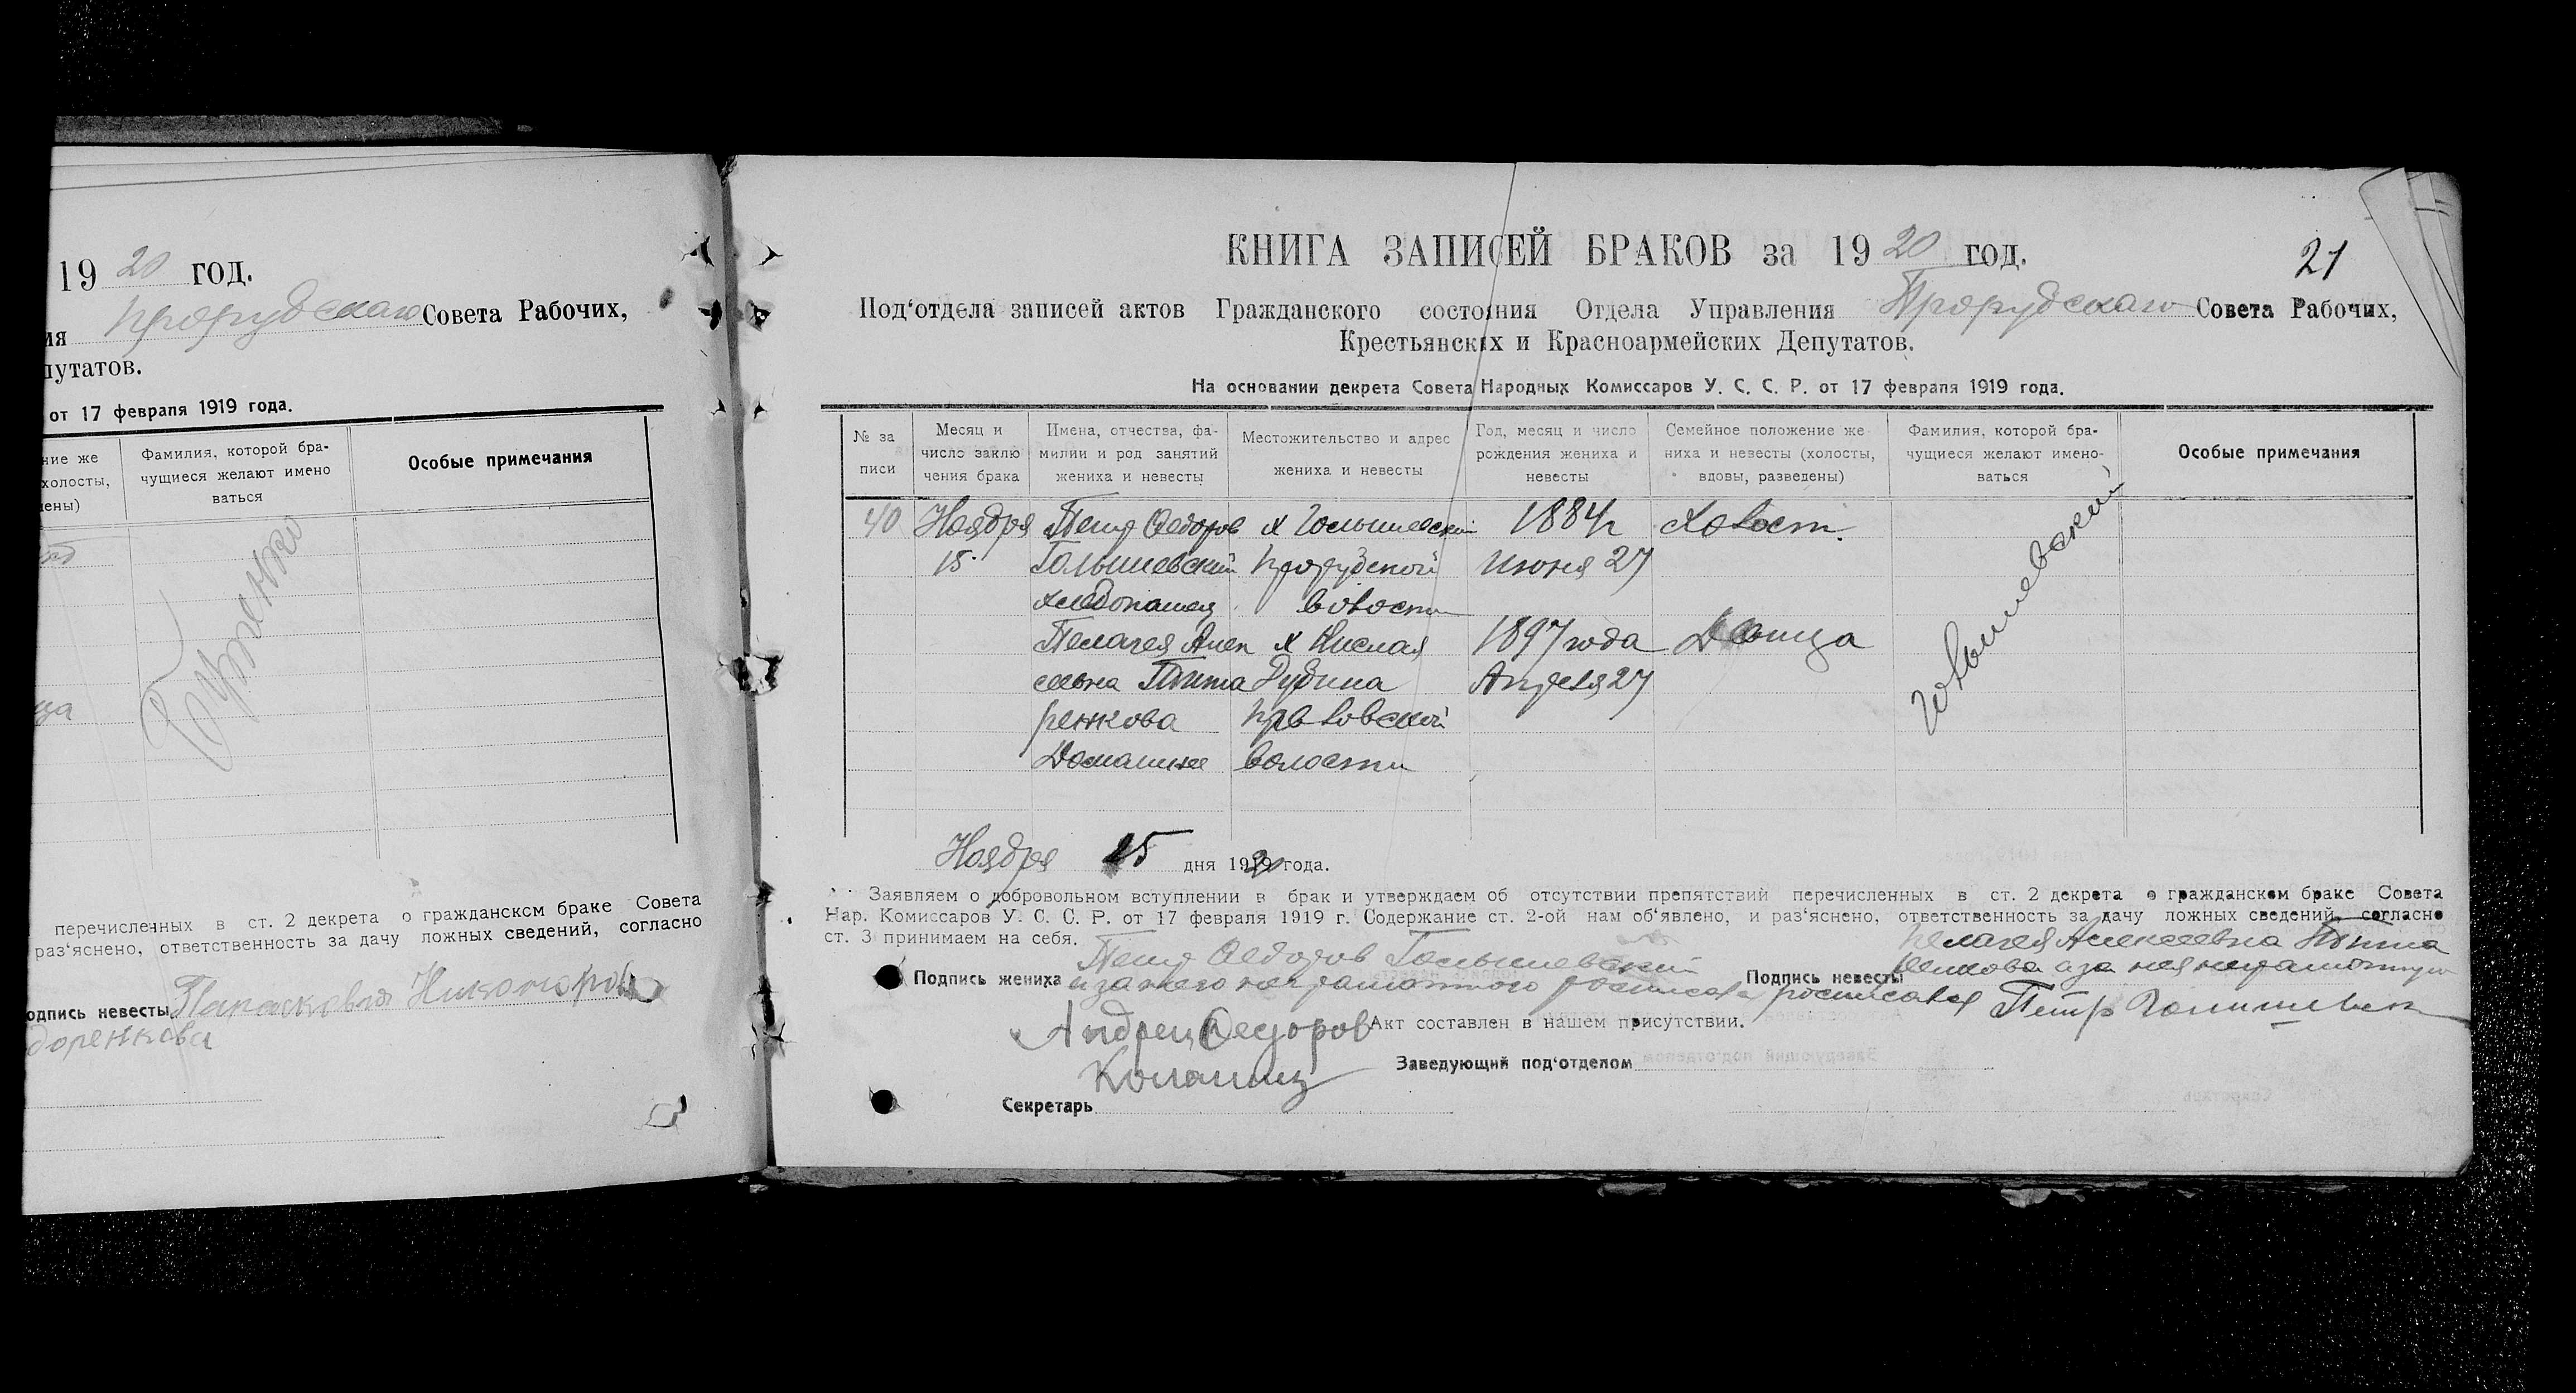 19 20 год.
ия Прорубскаго Совета Рабочих,
путатов.
от 17 февраля 1919 года.
ние же
холосты,
ены)
Фамилия, которой бра-
чущиеся желают имено
ваться
Особые примечания
ца
перечисленных в ст. 2 декрета о гражданском браке Совета
раз'яснено, ответственность за дачу ложных сведений, согласно
одпись невесты Параскевия
доренкова
КНИГА ЗАПИСЕЙ БРАКОВ за 19 20 год.
21
Под'отдела записей актов Гражданского состояния Отдела Управления Прорубскаго Совета Рабочих,
Крестьянских и Красноармейских Депутатов.
На основании декрета Совета Народных Комиссаров У. С. С. Р. от 17 февраля 1919 года.
№ за
писи
Месяц и
число заклю
чения брака
Имена, отчества, фа-
милии и род занятий
жениха и невесты
Местожительство и адрес
жениха и невесты
Год, месяц и число
рождения жениха и
невесты
Семейное положение же
ниха и невесты (холосты,
вдовы, разведены)
Фамилия, которой бра-
чущиеся желают имено-
ваться
Особые примечания
40
Ноября
15
Петр Федоров
Голышевский
хлебопашец
х Голышевский
Прорубской
волости
1884 г
Июня 27
Холост.
Голышевский
Пелагея Алек
сеевна Тита
ренкова
Домашнее
х Кислая
Дубина
волости
1897 года
Апреля 27
Девица
Ноября 15 дня 1920 года.
Заявляем о добровольном вступлении в брак и утверждаем об отсутствии препятствий перечисленных в ст. 2 декрета о гражданском браке Совета
Нар. Комиссаров У. С. С. Р. от 17 февраля 1919 г. Содержание ст. 2-ой нам об'явлено, и раз'яснено, ответственность за дачу ложных сведений, согласно
ст. 3 принимаем на себя.
Подпись жениха Петр Федоров Голышевский
и за него неграмотного росписался
Андрей Федоров
Подпись невесты Пелагея Алексеевна Тита
ренкова а за нея неграмотную
росписался Петр
Акт составлен в нашем присутствии.
Заведующий под'отделом
Секретарь